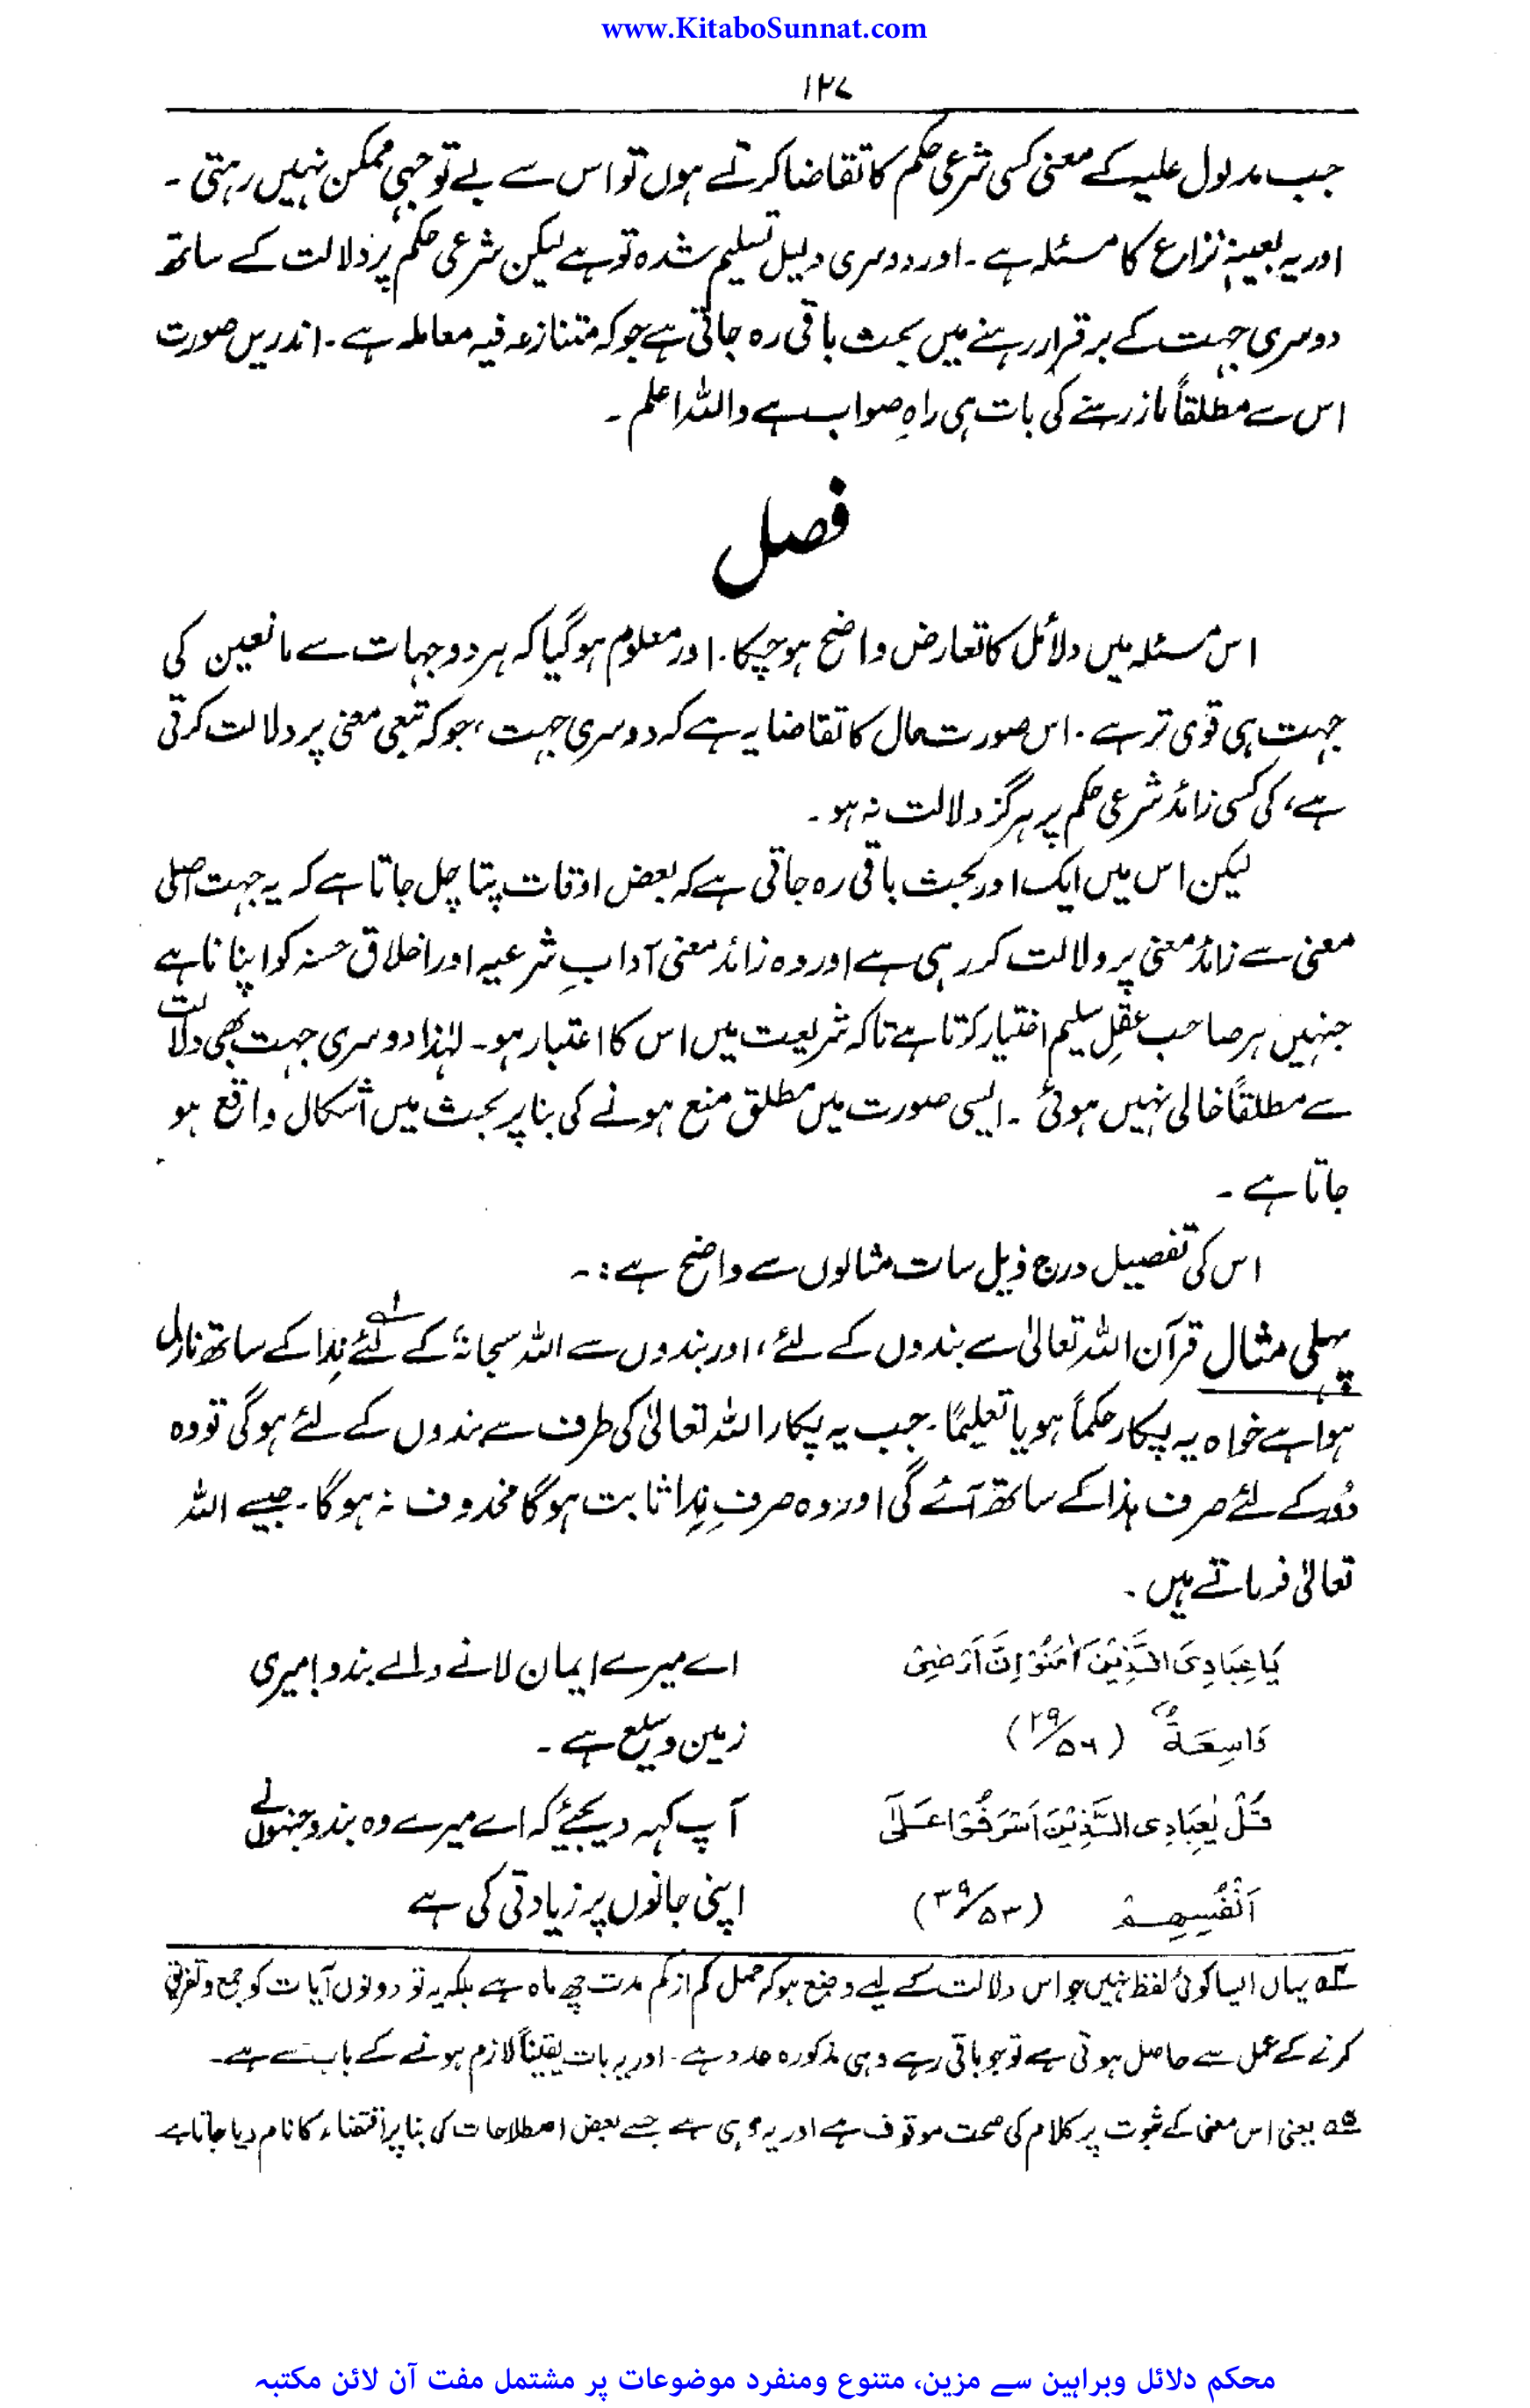 www.KitaboSunnat.com
۱۲۷
جب مدلول علیہ کے معنی کسی شرعی حکم کا تقاضا کرتے ہوں تو اس سے بے توجہی ممکن نہیں رہتی ۔
اور یہ بعینہٖ نزاع کا مسئلہ ہے ۔ اور دوسری دلیل تسلیم شدہ تو ہے لیکن شرعی حکم پر دلالت کے ساتھ
دوسری جہت کے برقرار رہنے میں بحث باقی رہ جاتی ہے جو کہ متنازعہ فیہ معاملہ ہے ۔ اندریں صورت
اس سے مطلقاً باز رہنے کی بات ہی راہِ صواب ہے واللہ اعلم ۔
فصل
اس مسئلہ میں دلائل کا تعارض واضح ہو چکا ۔ اور معلوم ہوگیا کہ ہر دو جہات سے مانعین کی
جہت ہی قوی تر ہے ۔ اس صورت حال کا تقاضا یہ ہے کہ دوسری جہت ، جو کہ تبعی معنی پر دلالت کرتی
ہے ، کی کسی زائد شرعی حکم پر ہرگز دلالت نہ ہو ۔
لیکن اس میں ایک اور بحث باقی رہ جاتی ہے کہ بعض اوقات پتا چل جاتا ہے کہ یہ جہت اصلی
معنی سے زائد معنی پر دلالت کر رہی ہے اور وہ زائد معنی آدابِ شرعیہ اور اخلاق حسنہ کو اپنانا ہے
جنہیں ہر صاحب عقلِ سلیم اختیار کرتا ہے تاکہ شریعت میں اس کا اعتبار ہو ۔ لہٰذا دوسری جہت بھی دلالت
سے مطلقاً خالی نہیں ہوئی ۔ ایسی صورت میں مطلق منع ہونے کی بنا پر بحث میں اشکال واقع ہو
جاتا ہے ۔
اس کی تفصیل درج ذیل سات مثالوں سے واضح ہے :۔
پہلی مثال قرآن اللہ تعالیٰ سے بندوں کے لئے ، اور بندوں سے اللہ سبحانہٗ کے لئے نِدا کے ساتھ نازل
ہوا ہے خواہ یہ پکار حکماً ہو یا تعلیماً ۔ جب یہ پکار اللہ تعالیٰ کی طرف سے بندوں کے لئے ہوگی تو وہ
دُور کے لئے حرف ہذا کے ساتھ آئے گی اور وہ حرفِ نِدا ثابت ہوگا محذوف نہ ہوگا ۔ جیسے اللہ
تعالیٰ فرماتے ہیں ۔
یَا عِبَادِیَ الَّذِیْنَ اٰمَنُوْا اِنَّ اَرْضِیْ اے میرے ایمان لانے والے بندو! میری
وَاسِعَةٌ (۲۹/۵۶) زمین وسیع ہے ۔
قُلْ یٰعِبَادِیَ الَّذِیْنَ اَسْرَفُوْا عَلٰٓی آپ کہہ دیجئے کہ اے میرے وہ بندو جنہوں نے
اَنْفُسِهِمْ (۳۹/۵۳) اپنی جانوں پر زیادتی کی ہے
۴؎ یہاں ایسا کوئی لفظ نہیں جو اس دلالت کے لیے وضع ہو کہ حمل کم از کم مدت چھ ماہ ہے بلکہ یہ تو دونوں آیات کو جمع و تفریق
کرنے کے عمل سے حاصل ہوتی ہے تو جو باقی رہے وہی مذکورہ عدد ہے ۔ اور یہ بات یقیناً لازم ہونے کے باب سے ہے ۔
۵؎ یعنی اس معنی کے ثبوت پر کلام کی صحت موقوف ہے اور یہ وہی ہے جسے بعض اصطلاحات کی بنا پر اقتضاء کا نام دیا جاتا ہے
محکم دلائل وبراہین سے مزین، متنوع ومنفرد موضوعات پر مشتمل مفت آن لائن مکتبہ